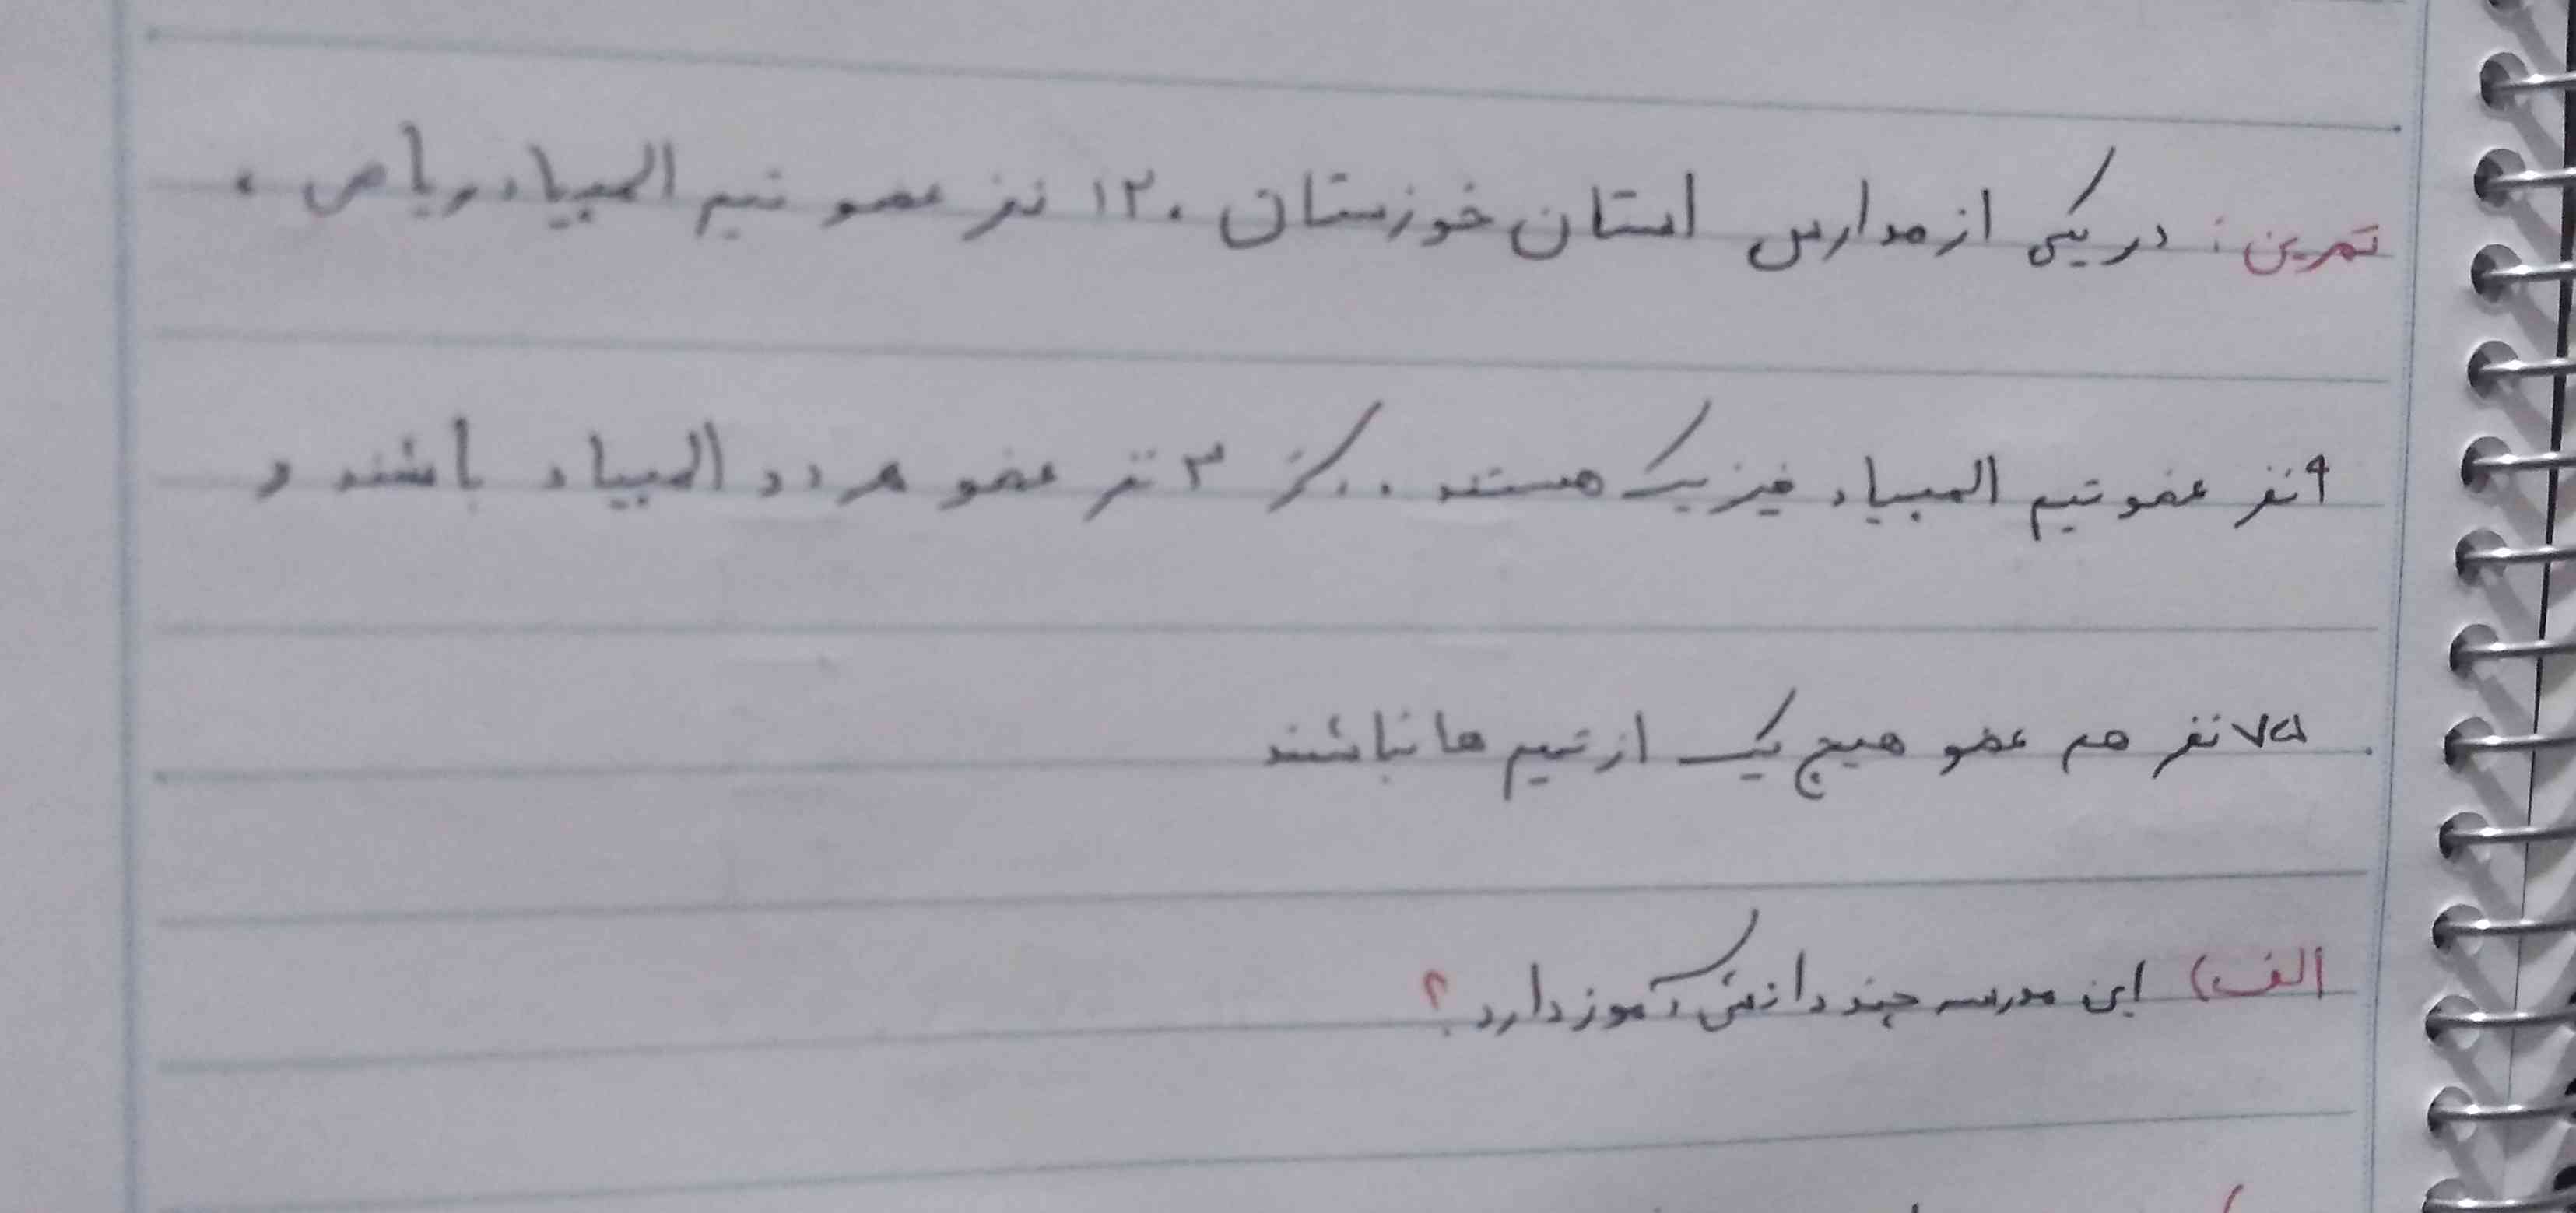 تمرین : در یکی از مدارس استان خوزستان ۱۲۰ نفر عضو تیم المپیاد ریاضی ،
۹ نفر عضو تیم المپیاد فیزیک هستند . اگر ۳ نفر عضو هر دو المپیاد باشند و
۷۵ نفر هم عضو هیچ یک از تیم ها نباشند .
الف) این مدرسه چند دانش آموز دارد ؟